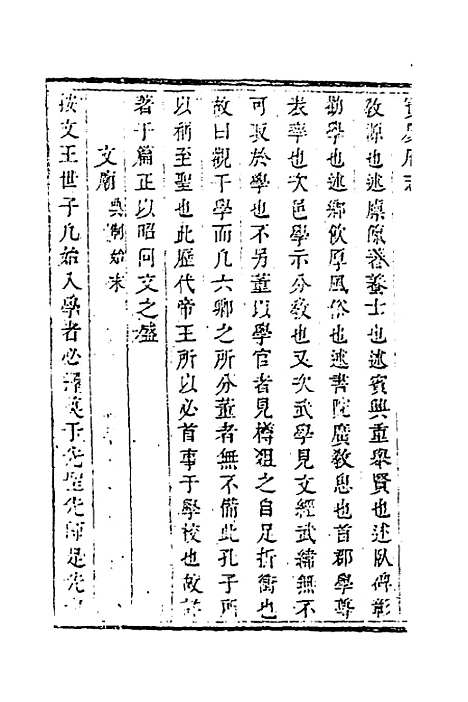 教源也述廩餼養士也述賓興重舉賢也述臥碑彰
勸學也述鄉飲厚風俗也述書院廣教思也首郡學尊
表率也次邑學示分教也又次武學見文經武緯無不
可取於學也不另董以學官者見樽俎之自足折衝也
故曰觀于學而凡六卿之所分董者無不備此孔子所
以稱至聖也此歷代帝王所以必首事于學校也故
著于篇正以昭同文之盛
文廟 典制始末
按文王世子凡始入學者必釋奠于先聖先師是先